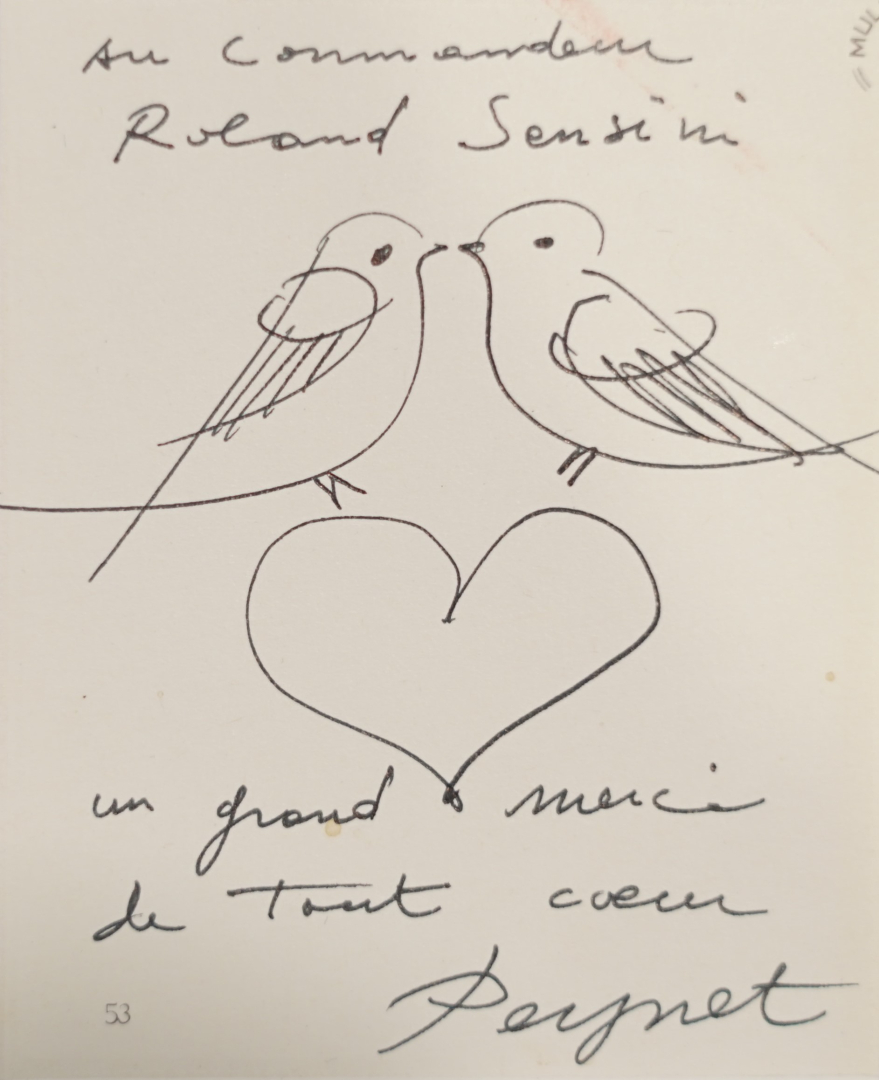 au Commandeur
Roland Sensini
un grand merci
de Tout cœur
Peynet
53